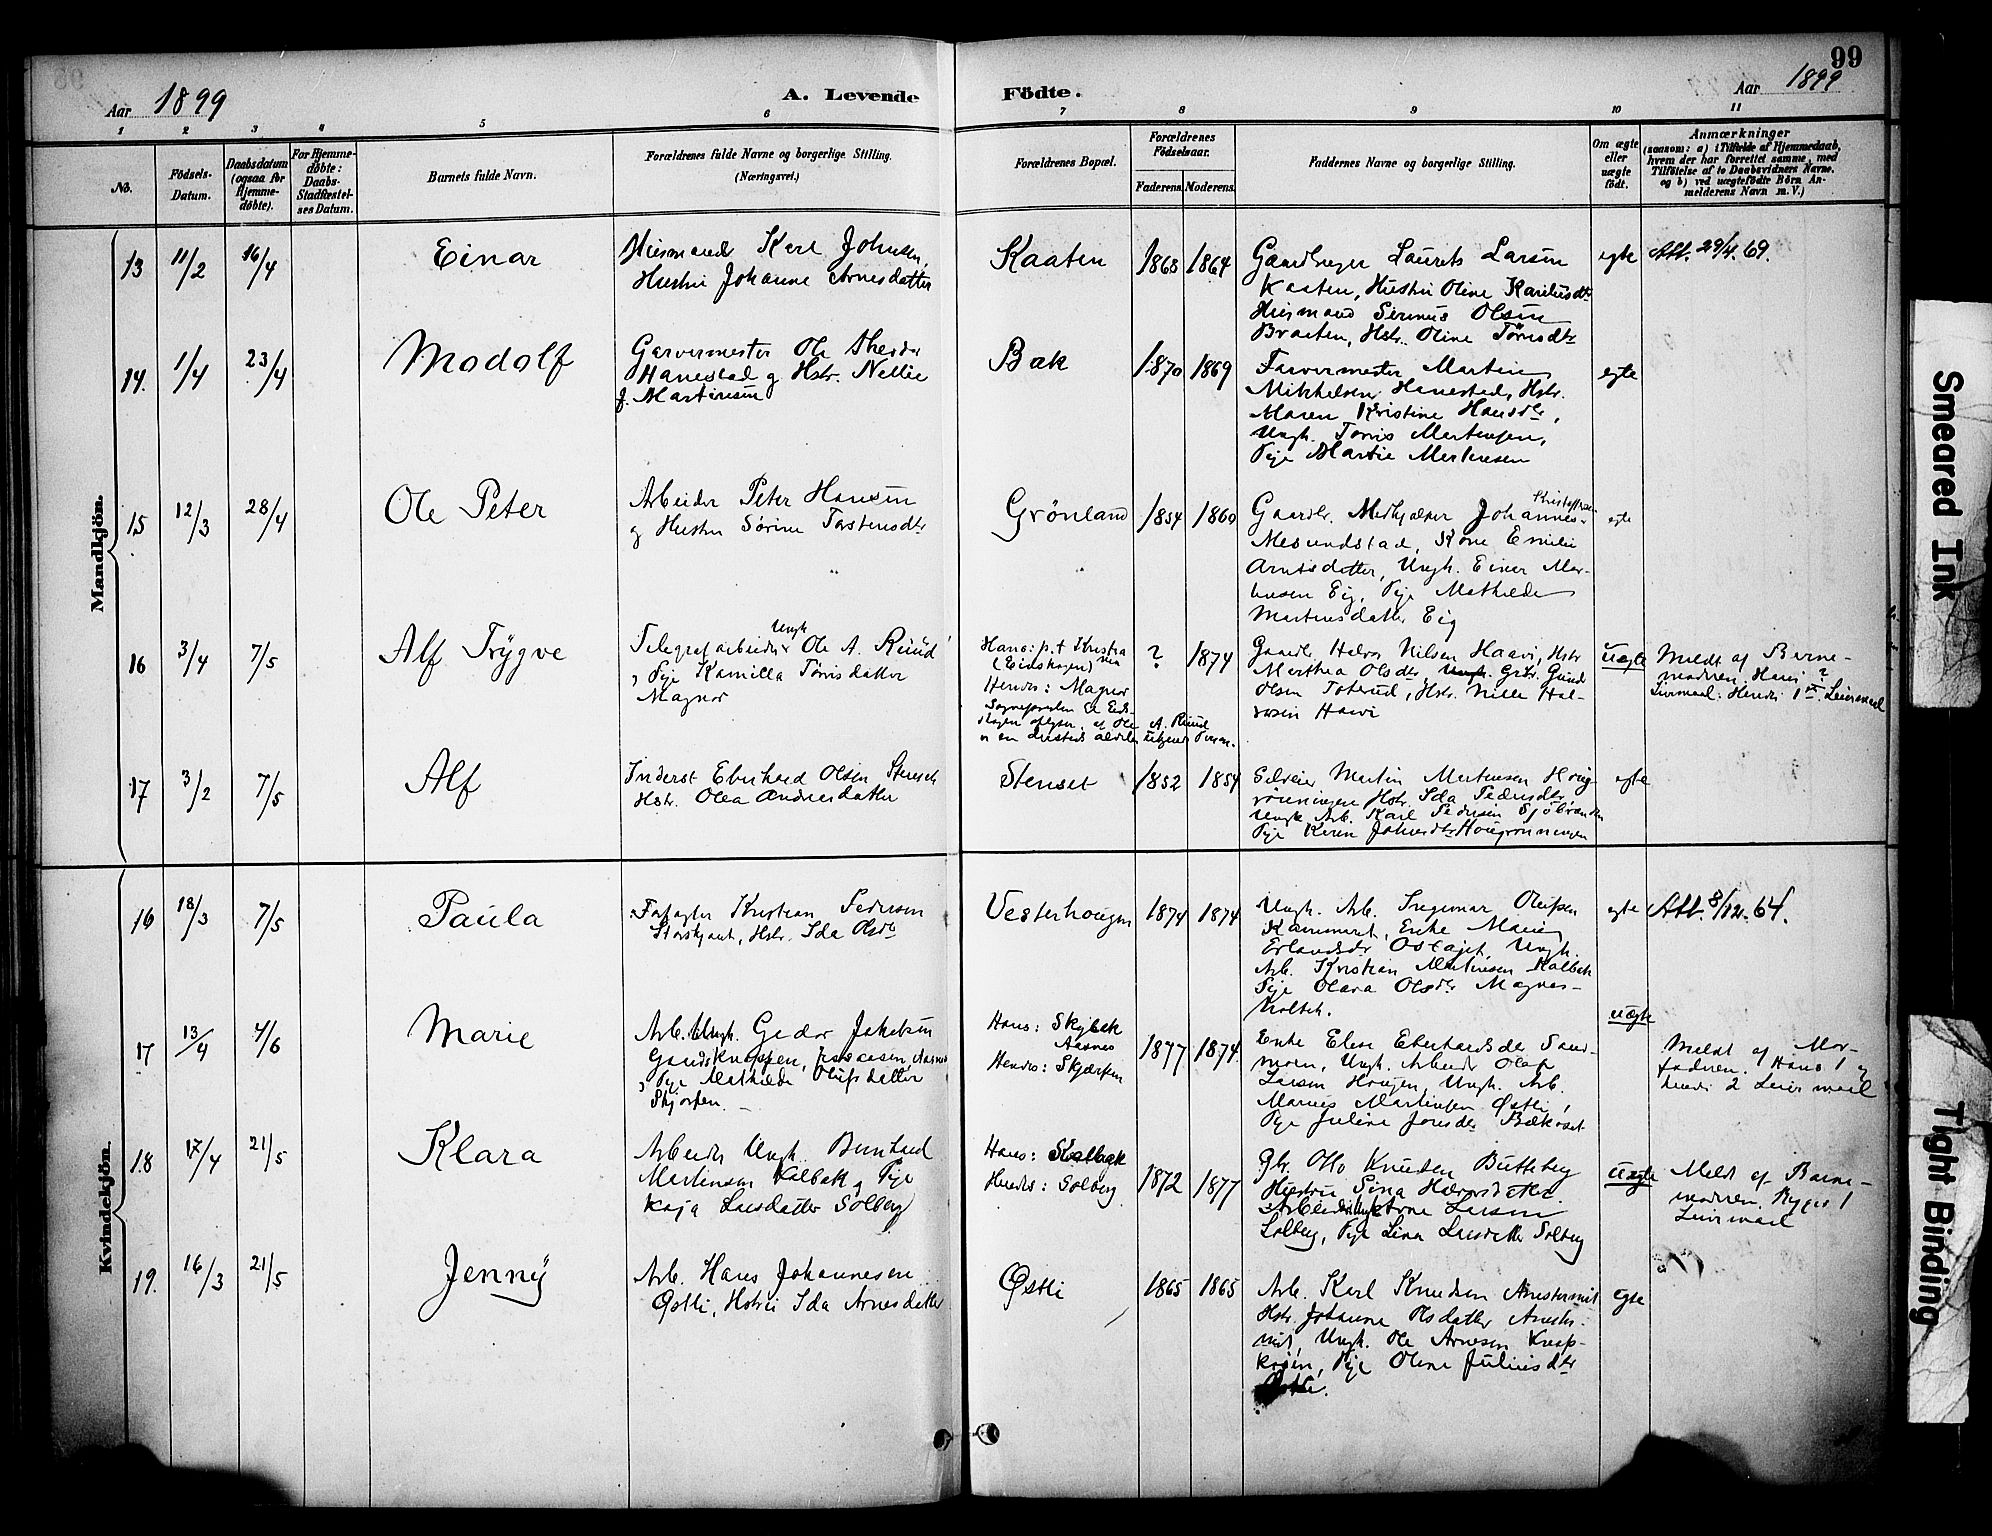 99
Aar 1899
A. Levende Födte.
Aar 1899
1 2 3 4 5 6 7 8 9 10 11
No.
Födsels-Datum.
Daabsdatum (ogsaa for Hjemme-döbte).
For Hjemme-döbte: Daabs-Stadfæstel-ses Datum.
Barnets fulde Navn.
Forældrenes fulde Navne og borgerlige Stilling.
(Næringsvei.)
Forældrenes Bopæl.
Forældrenes Födselsaar.
Faderens. Moderens.
Faddernes Navne og borgerlige Stilling.
Om ægte eller uægte födt.
Anmærkninger
(saasom: a) i Tilfælde af Hjemmedaab,
hvem der har forrettet samme, med
Tilföielse af to Daabsvidners Navne.
og b) ved uægtefödte Börn An-
melderens Navn m. V.)
Mandkjön.
13 11/2 16/4 Einar
Husmand Karl Johnsen,
Hustru Johanne Arnesdatter
Kaaten 1868 1864
Gaardbruger Laurits Larsen
Kaaten, Hustru Oline Kariliusdtr
Husmand Sermus Olsen
Braaten, Hstr. Oline Tørrisdtr
egte Att. 29/4.69.
14. 1/4 23/4 Modolf
Garvermester Ole
Hanestad g Hstr. Nellie
f. Martinsen
Bak 1870 1869
Farvermester Martin
Mikkelsen Hanestad, Hstr.
Maren Kristine Hansdtr,
Ungk. Torris Martinsen,
Pige Martie Martinsen
egte
15 12/3 28/4 Ole Peter
Arbeider Peter Hansen
g Hustru Sørine Torstensdtr
Grönland 1854 1860
Gaardbr. Medhjælper Johannes Kristoffersen
Mesundstad, Kone Emilie
Arntsdatter, Ungk. Einar Mar-
tinsen Eig, Pige Mathilde
Martinsdatter Eig
egte
16 3/4 7/5 Alf Trÿgve
Telegrafarbeider Ungk Ole A. Ruud
, Pige Kamilla Tørrisdatter
Magnor
Hans: p.t Kristiania
(Eidskogen)
Hendes: Magnor
Sognepresten til Eids-
skogen oplyser, at Ole A. Ruud
er en dersteds aldeles ukjendt Person.
? 1874
Gaardbr. Halvor Nilsen Haavi, Hstr
Marthea Olsdtr, Grbr. Gunder
Olsen Toterud, Hstr. Nille Hal-
vorsen Haavi
uegte
Meldt af Barne-
moderen. Hans ?
Leiermaal: Hendes 1ste Leiermaal
17 3/2 7/5 Alf
Inderst Eberhard Olsen Stenseth
Hstr. Olea Andreasdatter
Stenset 1852 1854
Martin Martinsen Houg-
rönningen Hstr. Ida Pedersdtr,
Ungk. Arb. Karl Pedersen Sjöbranden
Pige Karen Johnsdtr Hougrönningen
egte
Kvindekjön.
16 18/3 7/5 Paula
Forpagter Kristian Pedersen
Storskjaret, Hstr. Ida Olsdtr
Vesterhougen 1874 1874
Ungk. Arb. Ingemar Olufsen
Kammeret, Enke Marie
Erlandsdtr Ostajet, Ungk.
Arb. Kristian Martinsen Kalbak
Pige Olava Olsdtr Magnes-
koltek.
egte Att. 8/12.64.
17 13/4 4/6 Marie
Arb. Ungk. Gedor Jakobsen
, Aasnes
, Pige Mathilde Olufsdatter
Skjorpen.
Hans: Skybak
Aasnes
Hendes: Skjærpen
1877 1874
Enke Elise Eberhardsdtr Sand-
moen, Ungk. Arbeider Olaf
Larsen Hougen, Ungk. Arb.
Marius Martinsen Østli,
Pige Juline Jonsdtr Bækoset
uegte
Meldt af Mor-
faderen. Hans 1 g
hendes 2 Leiermaal
18 17/4 21/5 Klara
Arbeider Ungk. Bernhard
Martinsen Kalbak g Pige
Kaja Larsdatter Solberg
Hans: Kalbak
Hendes: Solberg
1872 1877
Gbr. Otto Knudsen Butteberg
Hustru Sina Halvorsdatter.
Arbeider Ungk Arne Larsen
Solberg, Pige Lina Larsdatter Solberg
uegte
Meldt af Barne-
moderen. Begges 1
Leiermaal
19. 16/3 21/5 Jennÿ
Arb. Hans Johannesen
Østli, Hstru Ida Arnesdatter
Østli 1865 1865
Arb. Karl Knudsen Anestamil
Hstr. Johanne Olsdatter Anesta-
mil, Ungk. Ole Arnesen Knap-
kojen, Pige Olene Juliusdtr
Østli.
egte
Smeared Ink
Tight Binding